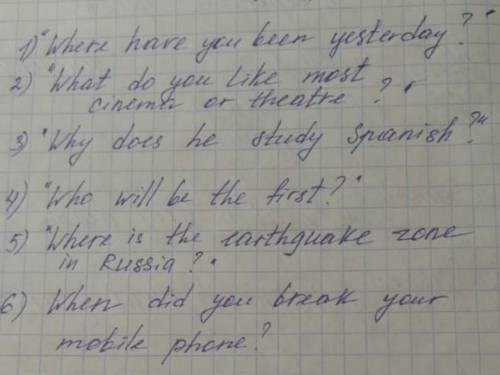 1) "Where have you been yesterday?"
2) "What do you like most
cinema or theatre ?"
3) "Why does he study Spanish?"
4) "Who will be the first?"
5) "Where is the earthquake zone
in Russia?"
6) When did you break your
mobile phone?